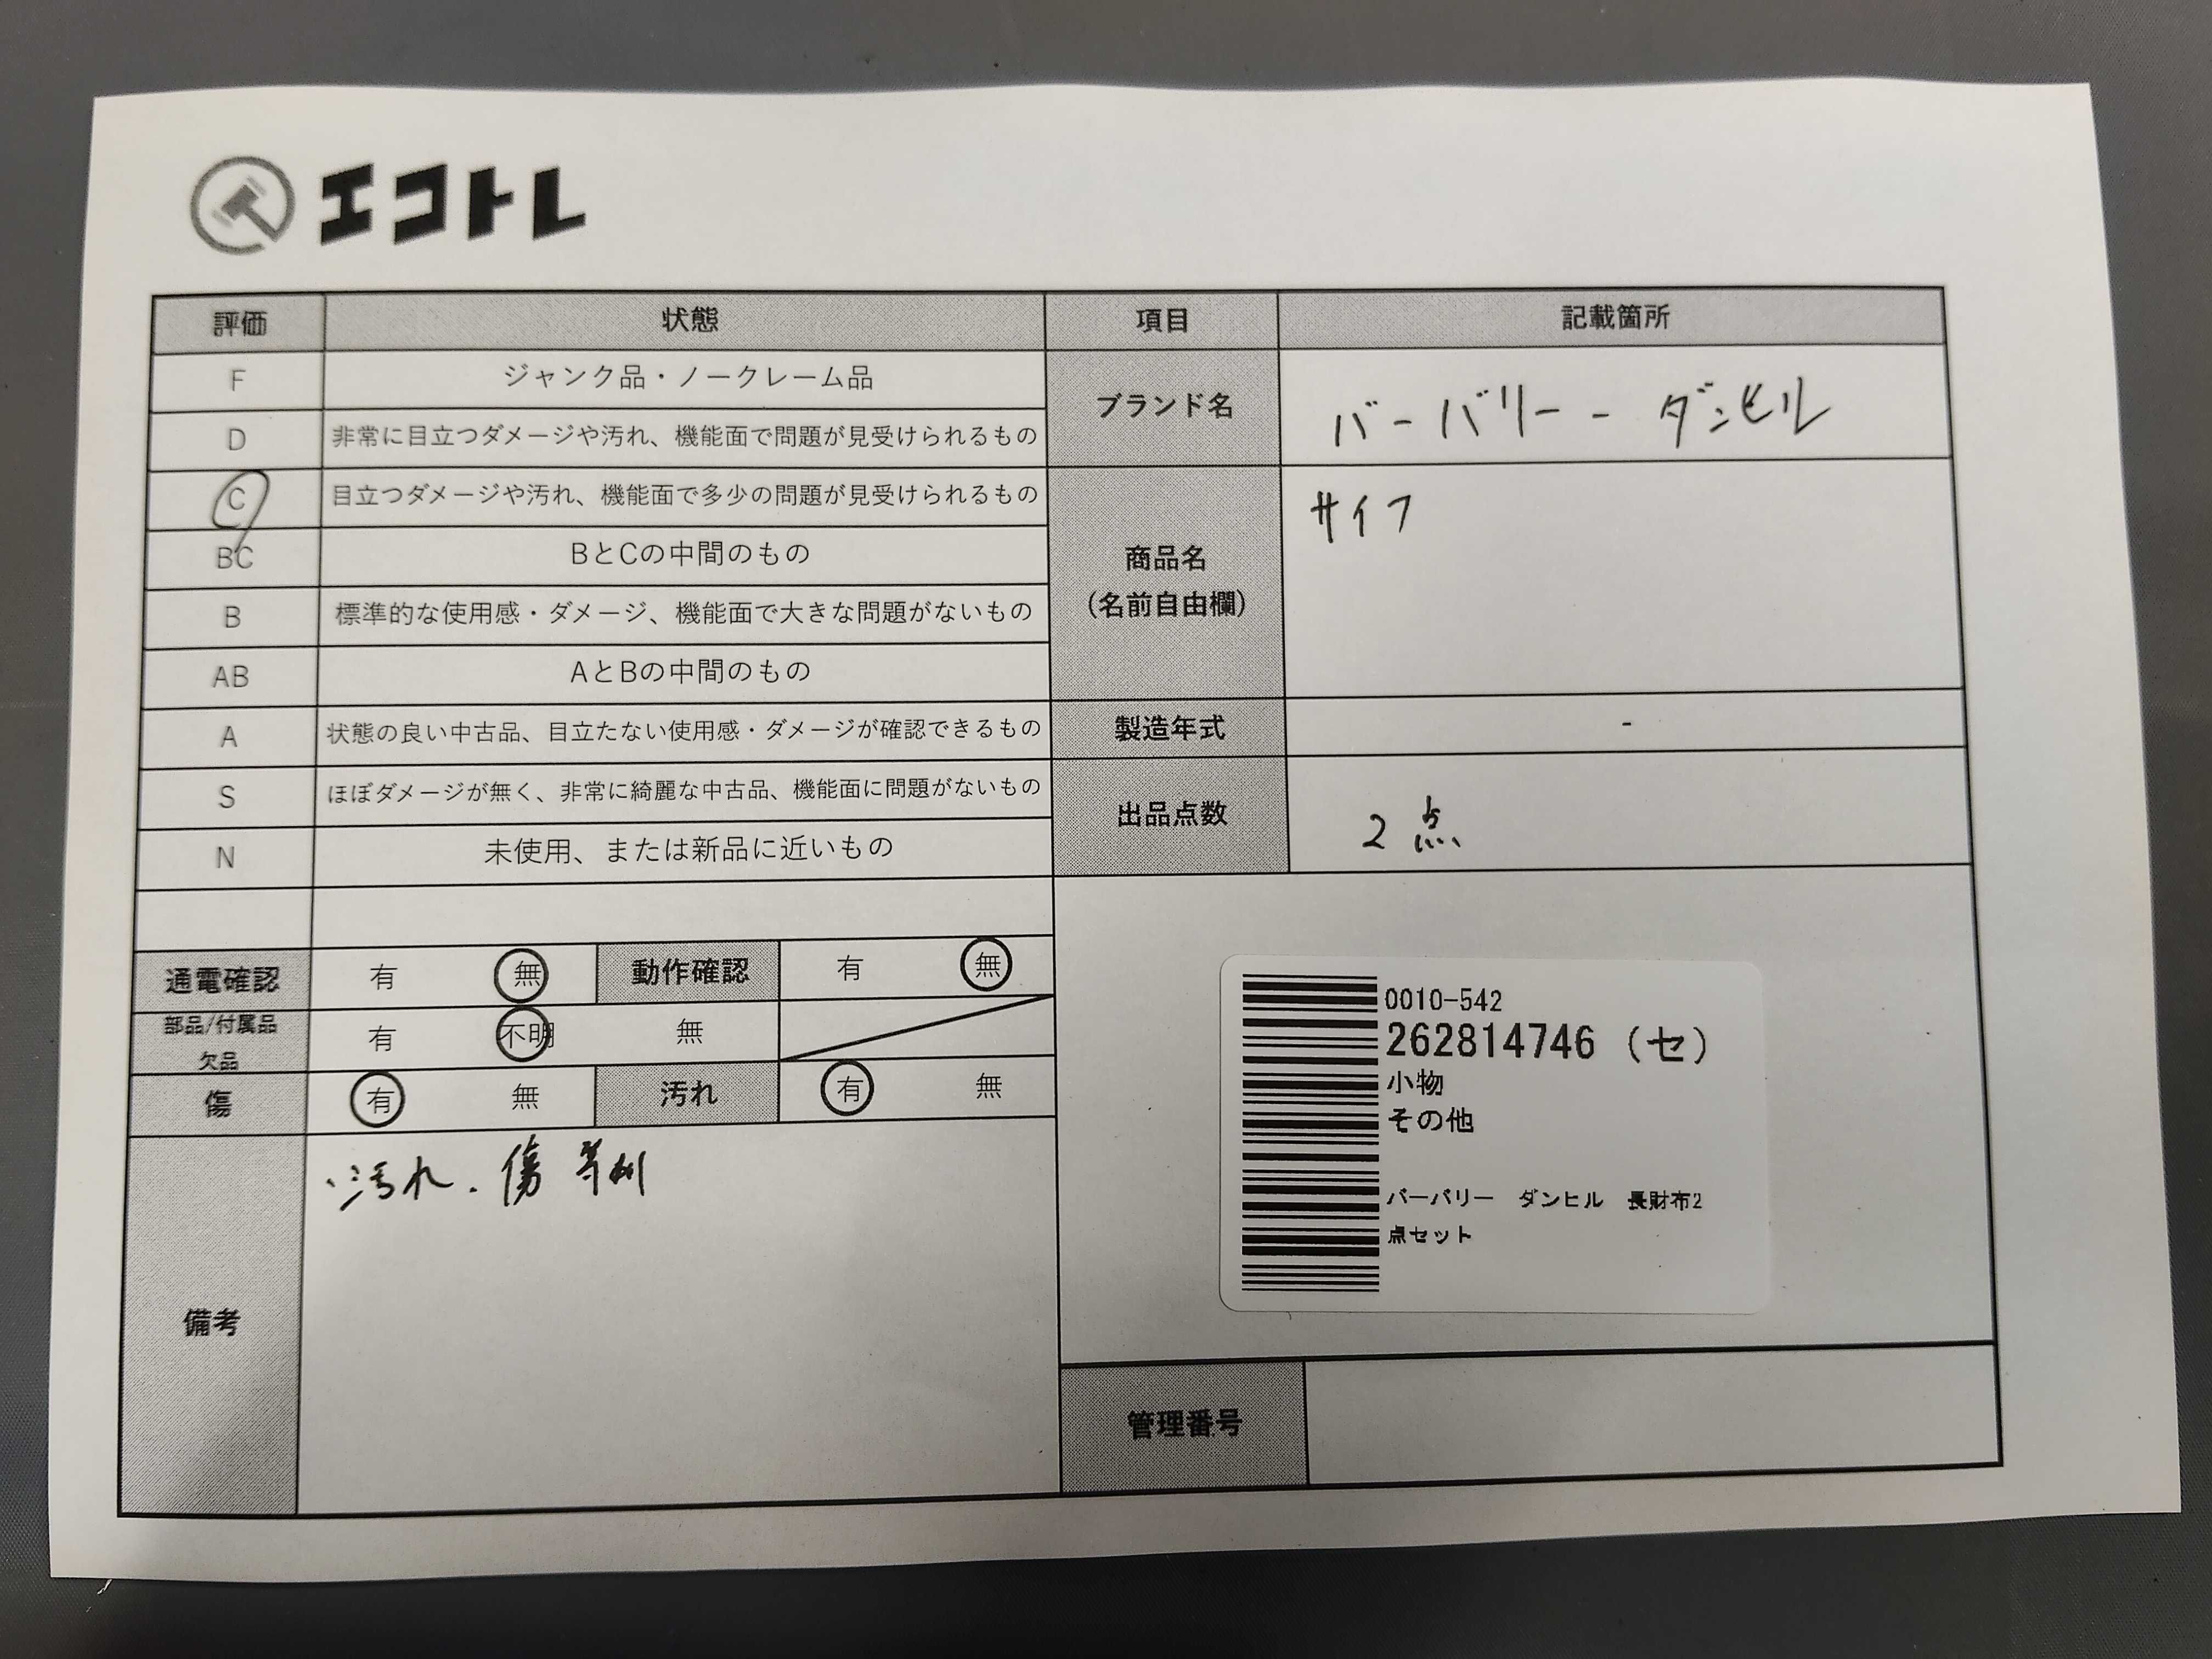 エコトレ
評価 状態 項目 記載箇所
F ジャンク品・ノークレーム品
D 非常に目立つダメージや汚れ、機能面で問題が見受けられるもの
ブランド名 バーバリー - ダンヒル
C 目立つダメージや汚れ、機能面で多少の問題が見受けられるもの
BC BとCの中間のもの
B 標準的な使用感・ダメージ、機能面で大きな問題がないもの
商品名
(名前自由欄)
サイフ
AB AとBの中間のもの
A 状態の良い中古品、目立たない使用感・ダメージが確認できるもの
製造年式 -
S ほぼダメージが無く、非常に綺麗な中古品、機能面に問題がないもの
N 未使用、または新品に近いもの
出品点数 2点
通電確認 有 無 動作確認 有 無
部品/付属品
欠品
有 不明 無
傷 有 無 汚れ 有 無
備考
・汚れ、傷等有り
0010-542
262814746 (セ)
小物
その他
バーバリー ダンヒル 長財布2
点セット
管理番号